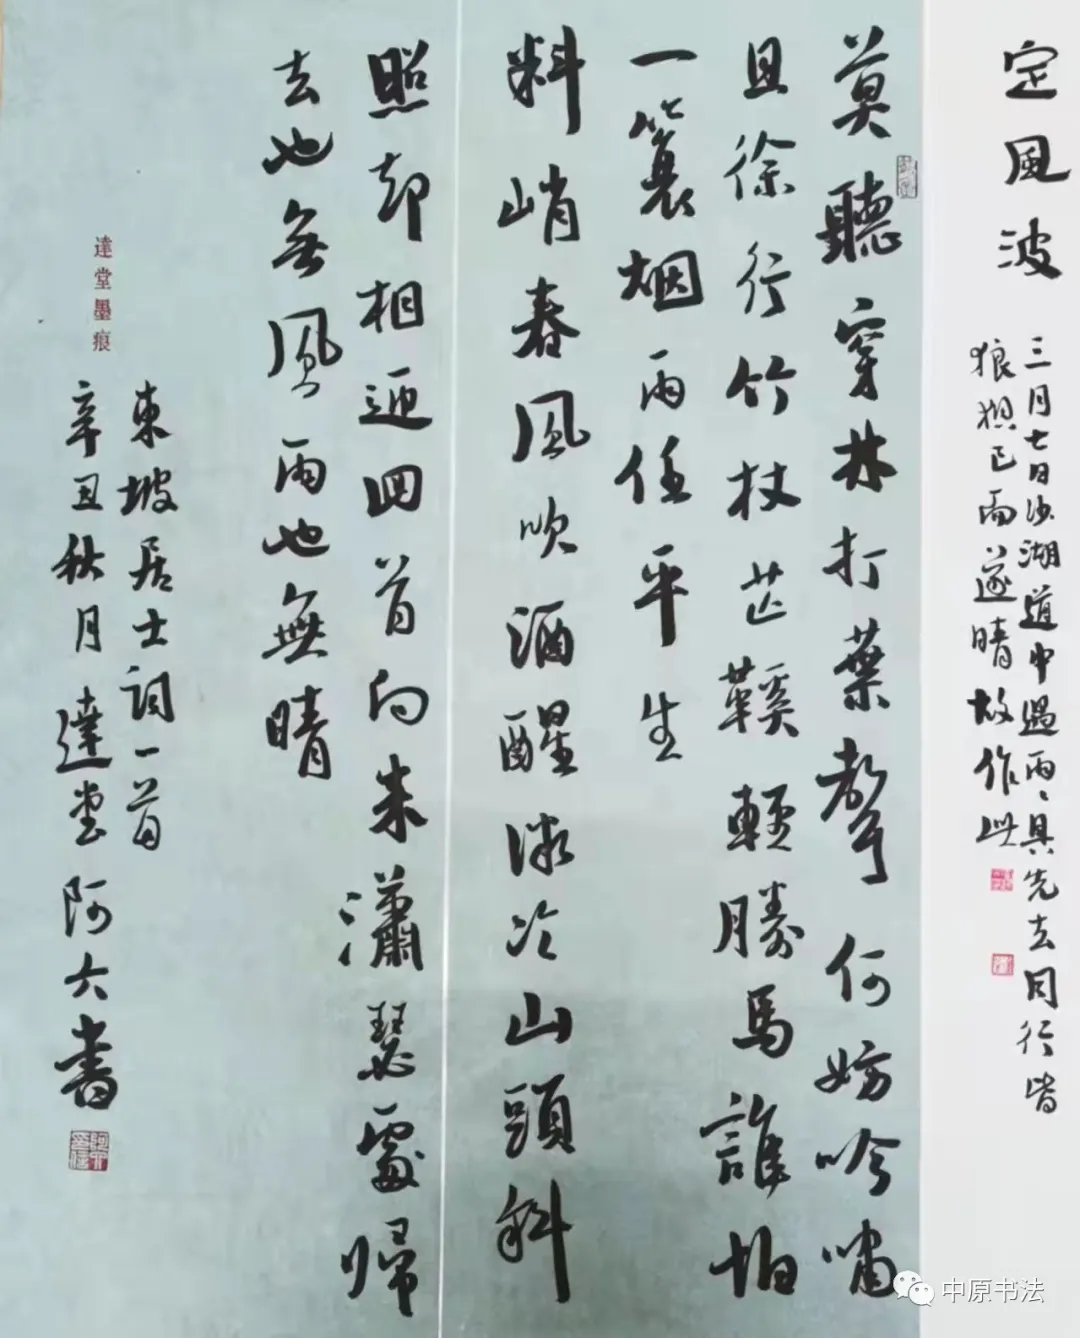 定風波
三月七日沙湖道中遇雨〻具先去同行皆
狼狽已而遂晴故作此
莫聽穿林打葉聲何妨吟嘯
且徐行竹杖芒鞵輕勝馬誰怕
一蓑烟雨任平生
料峭春風吹酒醒微冷山頭斜
照却相迎回首向来瀟瑟處歸
去也無風雨也無晴
東坡居士詞一首
辛丑秋月達堂阿大書
達堂墨痕
中原书法